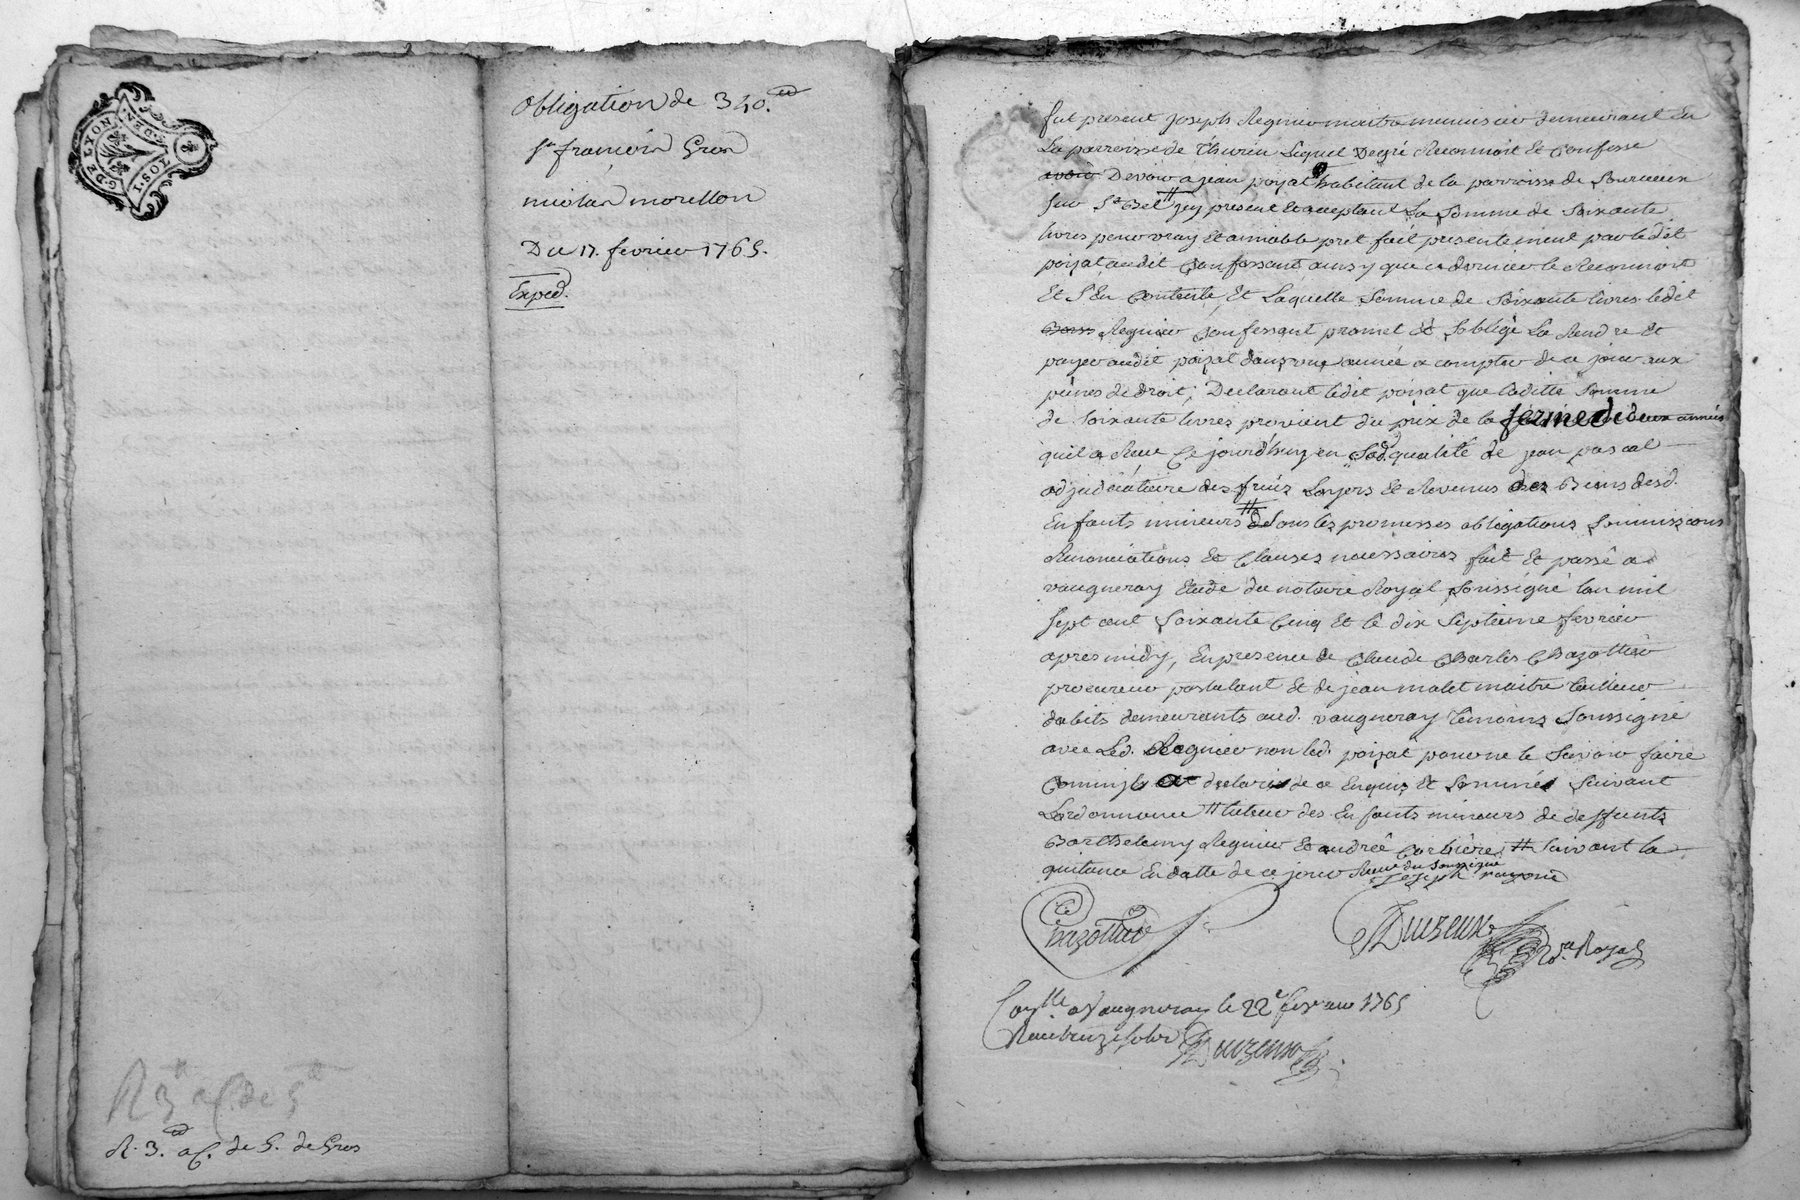 G. DE LYON
TOST. DEN
2
Obligation de 340.
Sr françois Gros
nicolas morellon
Du 17. fevrier 1765.
Exped.
R. 3. a C. de G. de Gros
fut present joseph Regnier maitre menuisier demeurant En
La parroisse de Thurin Lequel Degré Reconnoit Et Confesse
avoir Devoir a jean poizat habitant de la parroisse de Sourcieux
sur St Bel # jcy present Et acceptant La Somme de Soixante
livres pour vray Et amiable pret fait presentement par ledit
poizat audit Confessant ainsy que ce dernier le Reconnoit
Et S'En Contente, Et Laquelle Somme de Soixante livres ledit
Regnier Confessant promet Et S'oblige La Rendre Et
payer audit poizat dans une année a compter de ce jour aux
peines de droit, Declarant ledit poizat que laditte Somme
de Soixante livres provient du prix de la ferme de deux années
quil a Reçue Ce jourd'huy en Sad. qualité de jean pascal
adjudicataire des fruits Loyers Et Revenus des Biens desd.
Enfants mineurs # Sous les promesses obligations Soumissions
Renonciations Et Clauses necessaires fait Et passé a
vaugneray Etude du notaire Royal Soussigné lan mil
sept cent Soixante Cinq Et le dix Septieme fevrier
apres midy, En presence de Claude Charles Chazottier
procureur postulant Et de jean malet maitre tailleur
dabits demeurants aud. vaugneray temoins Soussigné
avec Led. Regnier non led. poizat pour ne le Savoir faire
Comme jl a declaré de ce Enquis Et Sommé Suivant
Lordonnance # tuteur des Enfants mineurs de deffunts
Barthelemy Regnier Et andrée Corbiere # Suivant la
quitance En datte de ce jour Reçue du Soussigné
Chazottier
Duzeux
No.re Royal
Con.lle a Vaugneray le 22e fevrier 1765
Reçu treize sols Duzeux